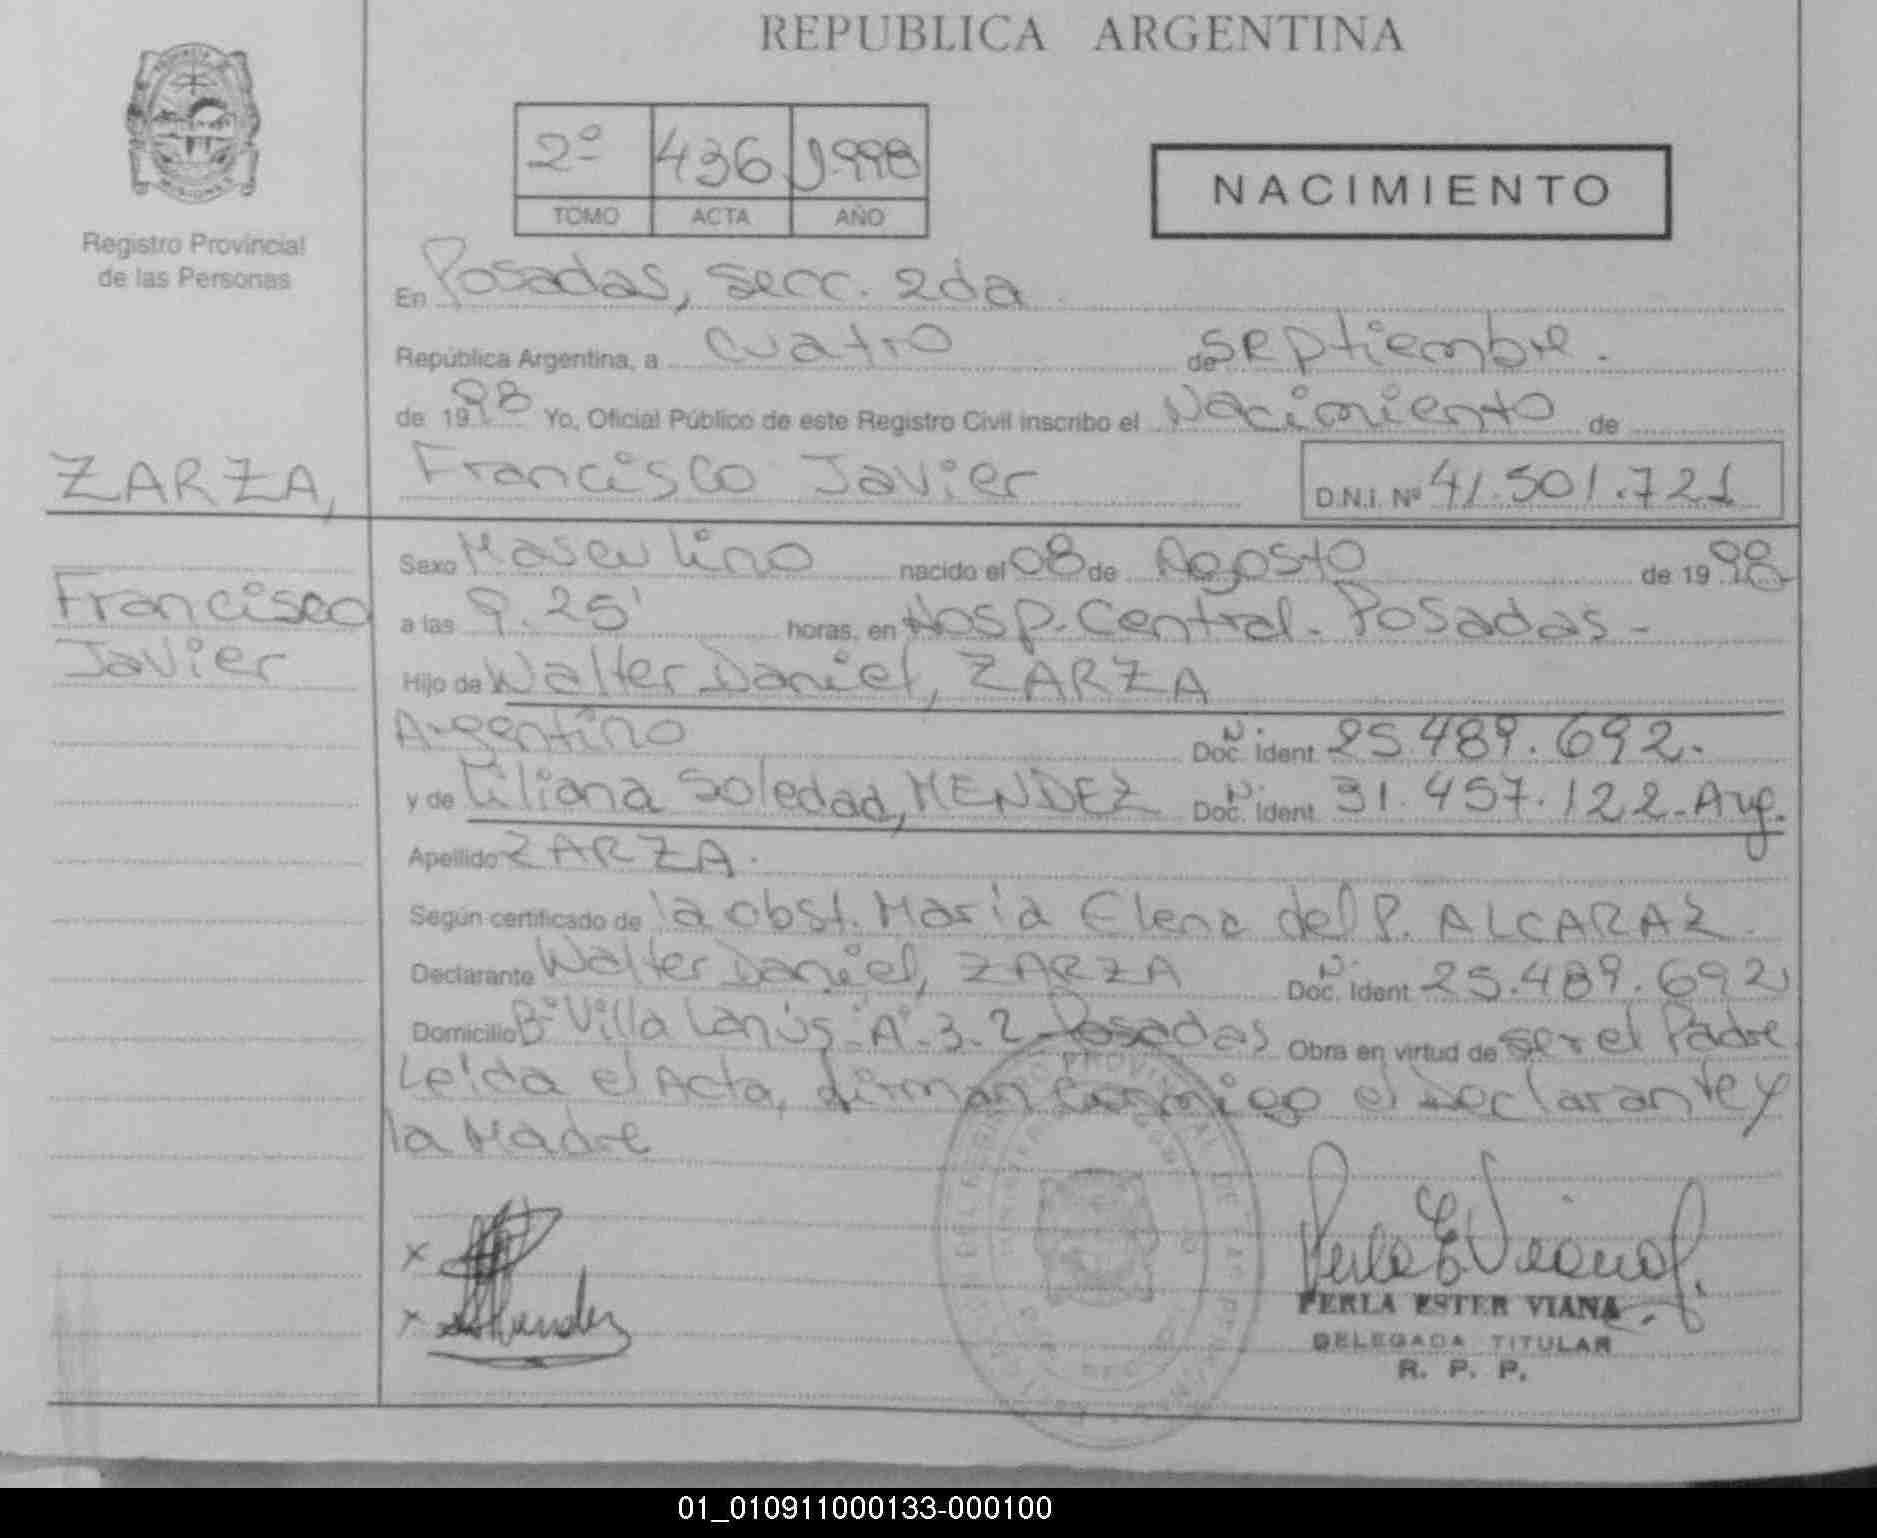 REPUBLICA ARGENTINA
2º 436 1.998
TOMO ACTA AÑO
NACIMIENTO
Registro Provincial
de las Personas
En Posadas, secc. 2da
República Argentina, a cuatro de septiembre.
de 1998 Yo, Oficial Público de este Registro Civil inscribo el Nacimiento de
ZARZA, Francisco Javier D.N.I. Nº 41.501.721
Francisco
Javier
Sexo Masculino nacido el 08 de Agosto de 1998
a las 9.25' horas, en Hosp. Central. Posadas-
Hijo de Walter Daniel, ZARZA
Argentino Doc. Ident. 25.489.692.
y de Liliana Soledad, MENDEZ Doc. Ident. 31.457.122-Arg.
Apellido ZARZA.
Según certificado de la obst. María Elena del P. ALCARAZ.
Declarante Walter Daniel, ZARZA Doc. Ident. 25.489.692
Domicilio Bº Villa Lanús-"A"-3-2-Posadas Obra en virtud de ser el Padre
Leída el Acta, firman conmigo el Declarante y
la Madre
x
x Mendez
PERLA ESTER VIANA
DELEGADA TITULAR
R. P. P.
01_010911000133-000100